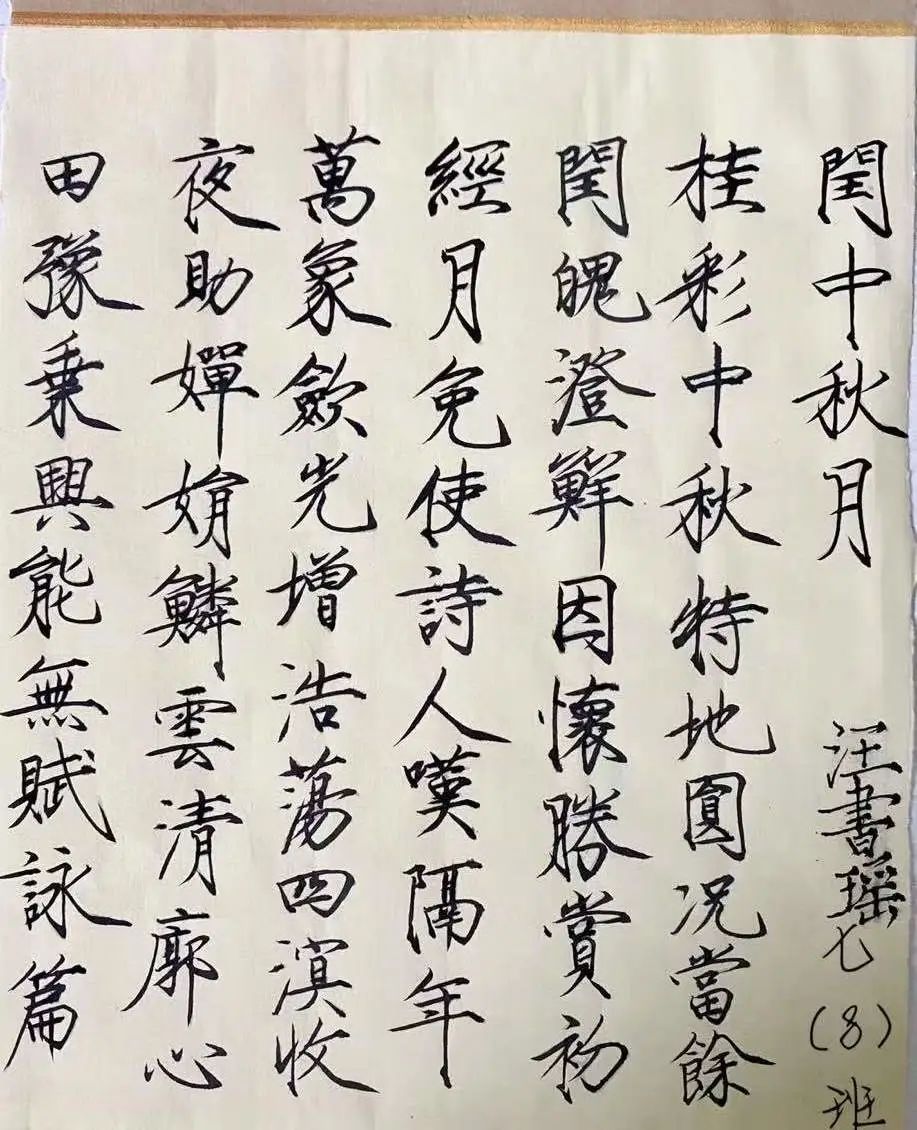 閏中秋月
汪書瑶七(8)班
桂彩中秋特地圓况當餘
閏魄澄鮮因懷勝賞初
經月免使詩人嘆隔年
萬象歛光增浩蕩四溟收
夜助嬋娟鱗雲清廓心
田豫乗興能無賦詠篇